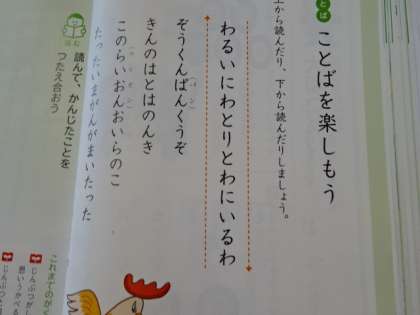 とば
ことばを楽しもう
上から読んだり、下から読んだりしましょう。
わるいにわとりとわにいるわ
ぞうくんぱんくうぞ
きんのはとはのんき
このらいおんおいらのこ
たったいまがんがまいたった
よむ
読んで、かんじたことを
つたえ合おう
これまでのがく
じんぶつが
思いうかべる